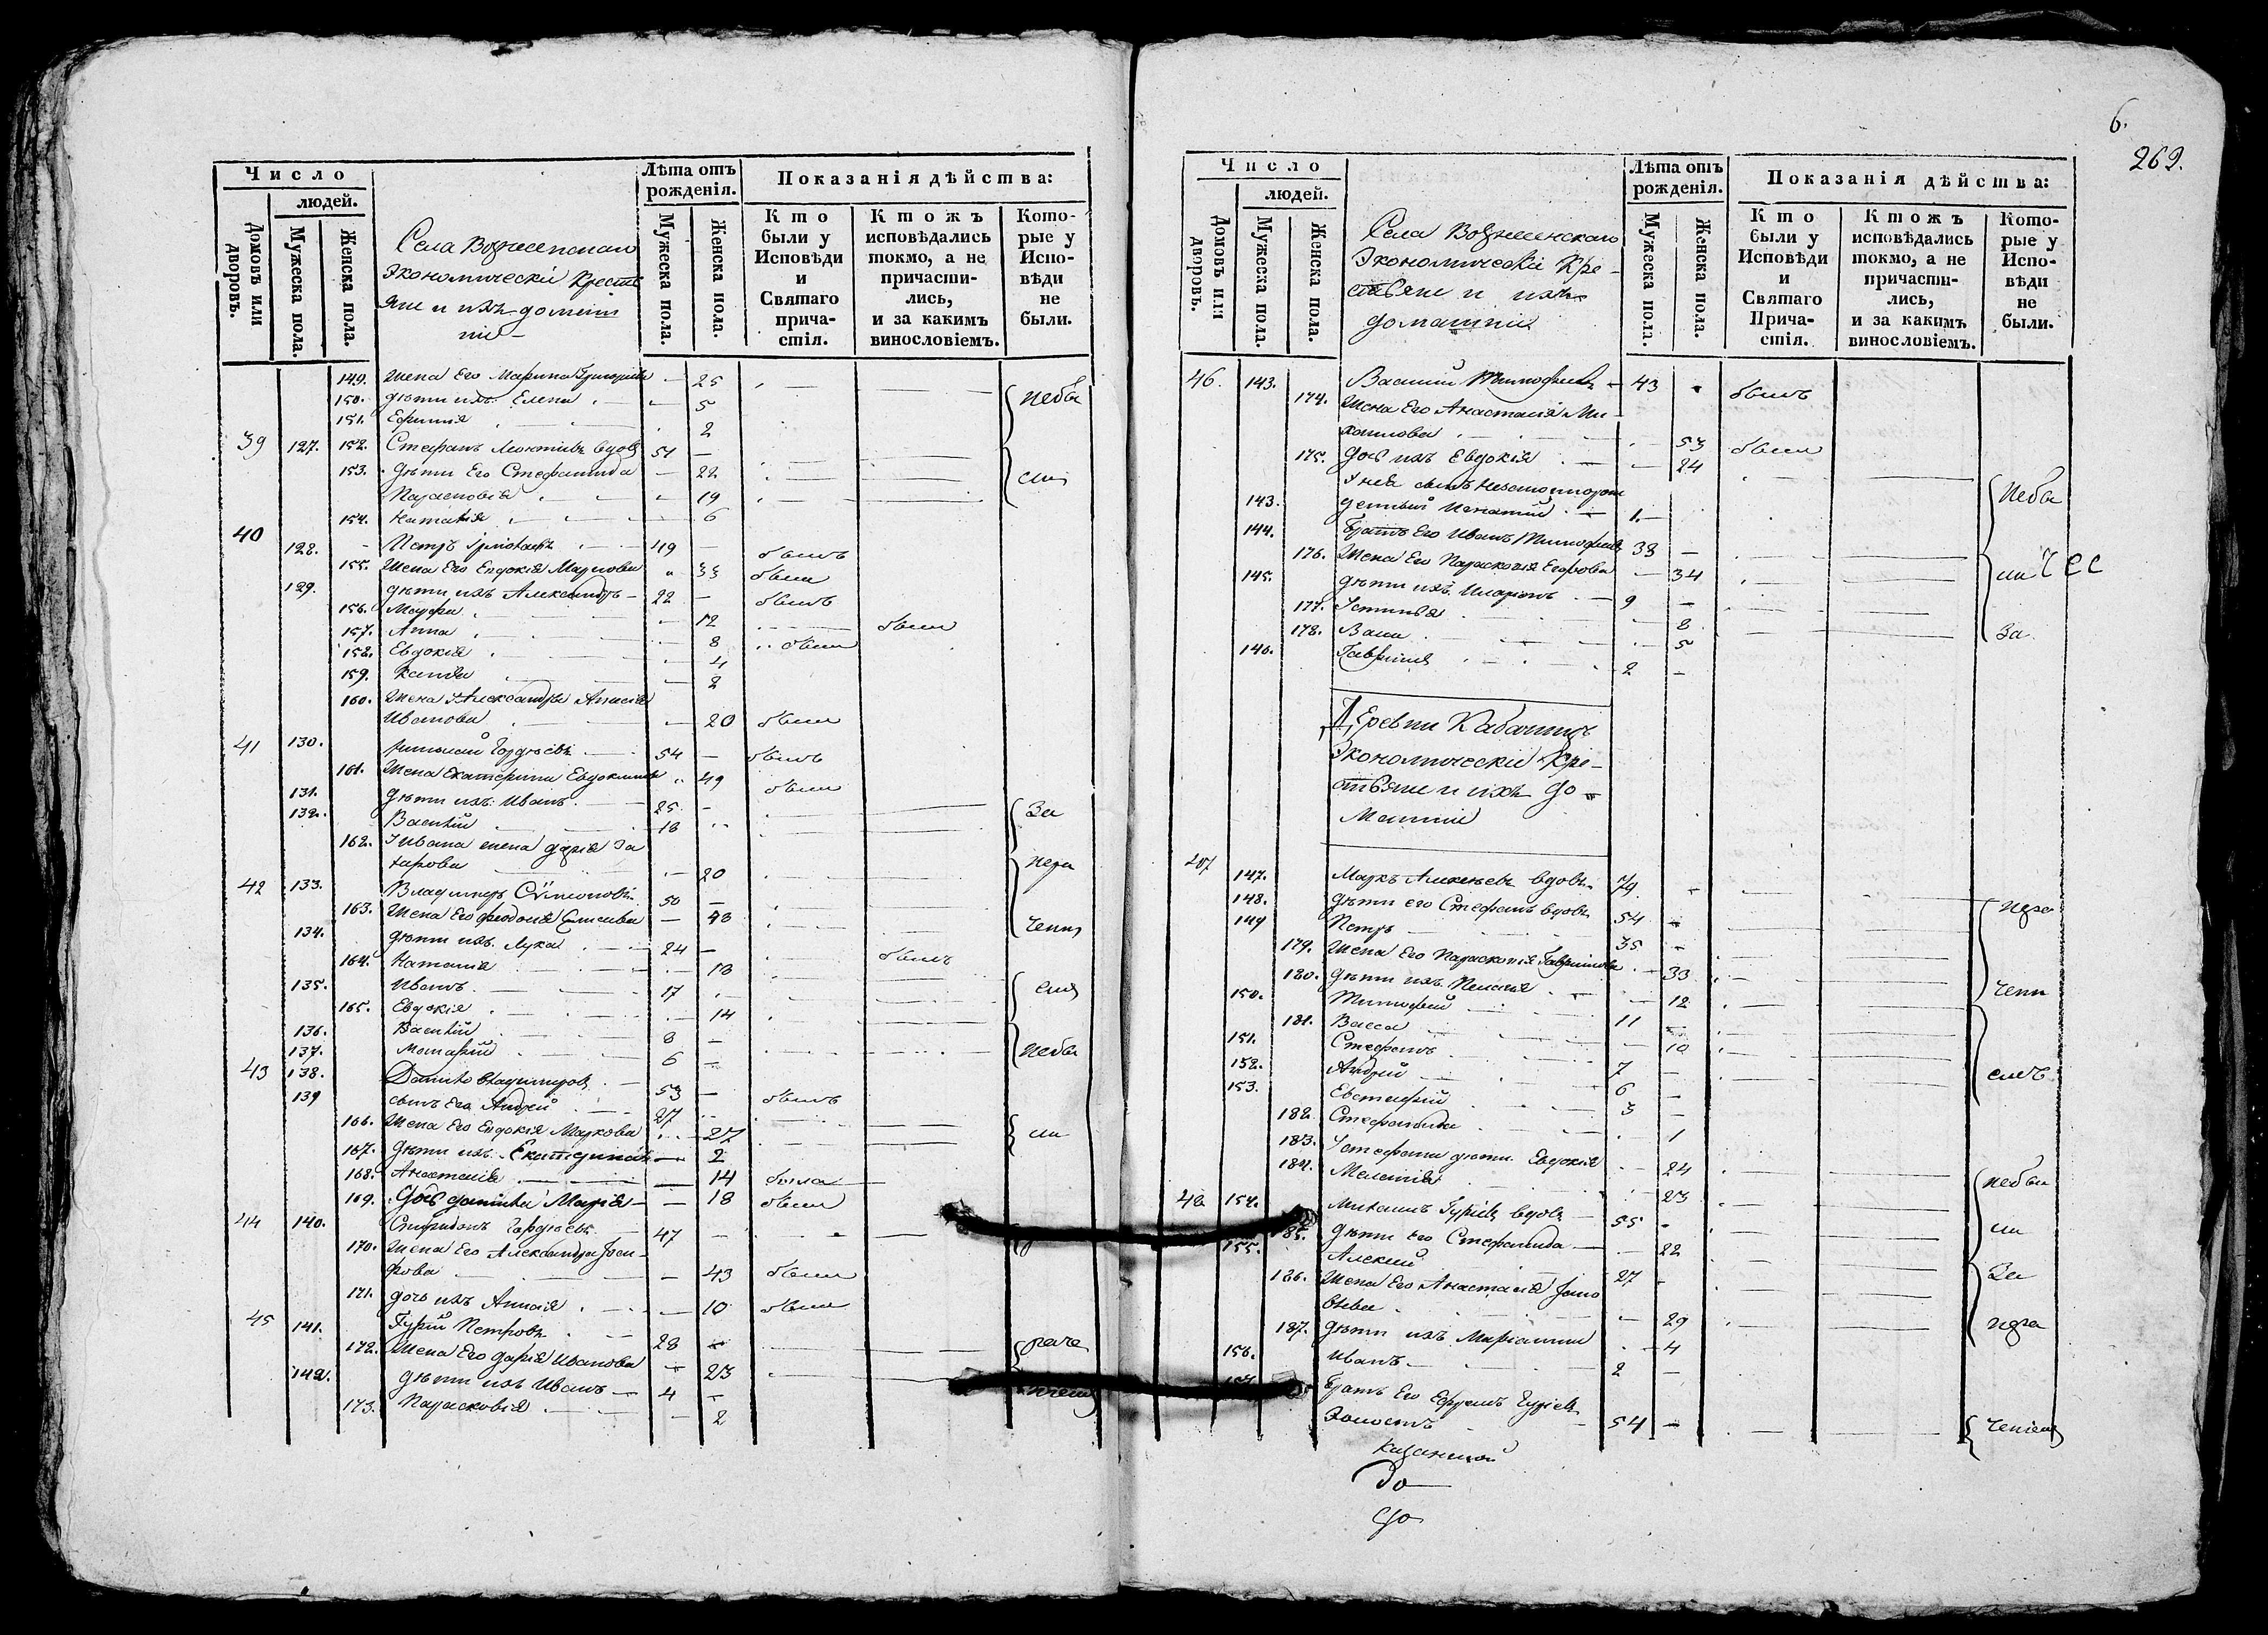 Число
людей.
Домовъ или дворовъ.
Мужеска пола.
Женска пола.
Села Вознесенскаго
Экономическіи Кресть
яне и ихъ домаш
ніи
Лѣта отъ рожденія.
Мужеска пола.
Женска пола.
Показанія дѣйства:
Кто были у Исповѣди и Святаго причастія.
Ктожъ исповѣдались токмо, а не причастились, и за какимъ винословіемъ.
Которые у Исповѣди не были.
149. Жена Его Марина Григорьева — 25
150. дѣти ихъ Елена — 5 небы
151. Ефимия 2
39 127. 152. Стефанъ вдовъ 51 —
153. дѣти Его Стефанида — 22 ли
Парасковія 19
154. Наталія 6
40
128. Петръ 49 — былъ
155. Жена Его Евдокія Маркова 33 была
129. дѣти ихъ Александръ 22 — былъ
156. Марфа 12 была
157. Анна 8 была
158. Евдокія 4
159. 2
160. Жена Александра
Иванова — 20 была
41 130. Гордѣевъ 54 — былъ
161. Жена Екатерина Евдокимова 49 была
131. дѣти ихъ Иванъ 25 — за
132. Василій 18
162. У Ивана жена Дарія За
харова 20 нера
42 133. Владимиръ Симеоновъ 50 —
163. Жена Его — 48 чени
134. дѣти ихъ Лука 24 —
164. Наталія 18 былъ
135. Иванъ 17 емъ
165. Евдокія 14
136. Василій 8 —
137. 6 — небы
43 138. Данило Владимировъ 53 — былъ
139 сынъ Его Андрей 27
166. Жена Его Евдокія Маркова 27 ли
167. дѣти ихъ Екатерина — 2
168. Анастасія — 14 была
169. Дочь Данила Марія — 18 была
44 140. Спиридонъ Гордѣевъ 47 —
170. Жена Его Александра Іоси
фова — 43 была
171. дочь ихъ — 10 была
45 141. Гурій Петровъ 28
172. Жена Его Дарія Иванова 23 раче
142. дѣти ихъ Иванъ 4 —
173. Парасковія — 2
6.
269.
Число
людей.
Домовъ или дворовъ.
Мужеска пола.
Женска пола.
Села Вознесенскаго
Экономическіи Кре-
стьяне и ихъ
домашніи
Лѣта отъ рожденія.
Мужеска пола.
Женска пола.
Показанія дѣйства:
Кто были у Исповѣди и Святаго Причастія.
Ктожъ исповѣдались токмо, а не причастились, и за какимъ винословіемъ.
Которые у Исповѣди не были.
46. 143. Василій Тимофѣевъ 43 былъ
174. Жена Его Анастасія Ми-
хаилова 53 была
175. дочь ихъ Евдокія 24
У нея сынъ незаконнорож небы
143. денный Игнатій 1.
144. Братъ Его Иванъ Тимофѣевъ 38 —
176. Жена Его Парасковія Егорова — 34 ли
145. дѣти ихъ Иларіонъ 9 —
177. Устинья 8
178. Васса 5 За
146. Гавріилъ 2 —
Деревни
Экономическіи Кре-
стьяне и ихъ до-
машніи
47
147. Маркъ Алексѣевъ вдовъ 79
148. дѣти его Стефанъ вдовъ 54 нера
149 Петръ 35
179. Жена Его Парасковія Гавриилова 33
180. дѣти ихъ Пелагія 12 чени
150. Тимофей 11
181. Васса 10
151. Стефанъ 7 —
152. Андрей 6 — емъ
153. Евстафій 3 —
182. Стефанида 1
183. У Стефана дѣти Евдокія 24
184. Мелетія 23 небы
48 154. Михаилъ Гуріевъ вдовъ 55
185. дѣти Его Стефанида — 22 ли
155. Алексий 27
186. Жена Его Анастасія За
29
187. дѣти ихъ Маріамна 4 нера
156. Иванъ 2 —
Братъ Его Ефремъ Гуріевъ
Холостъ 54 — ченіемъ